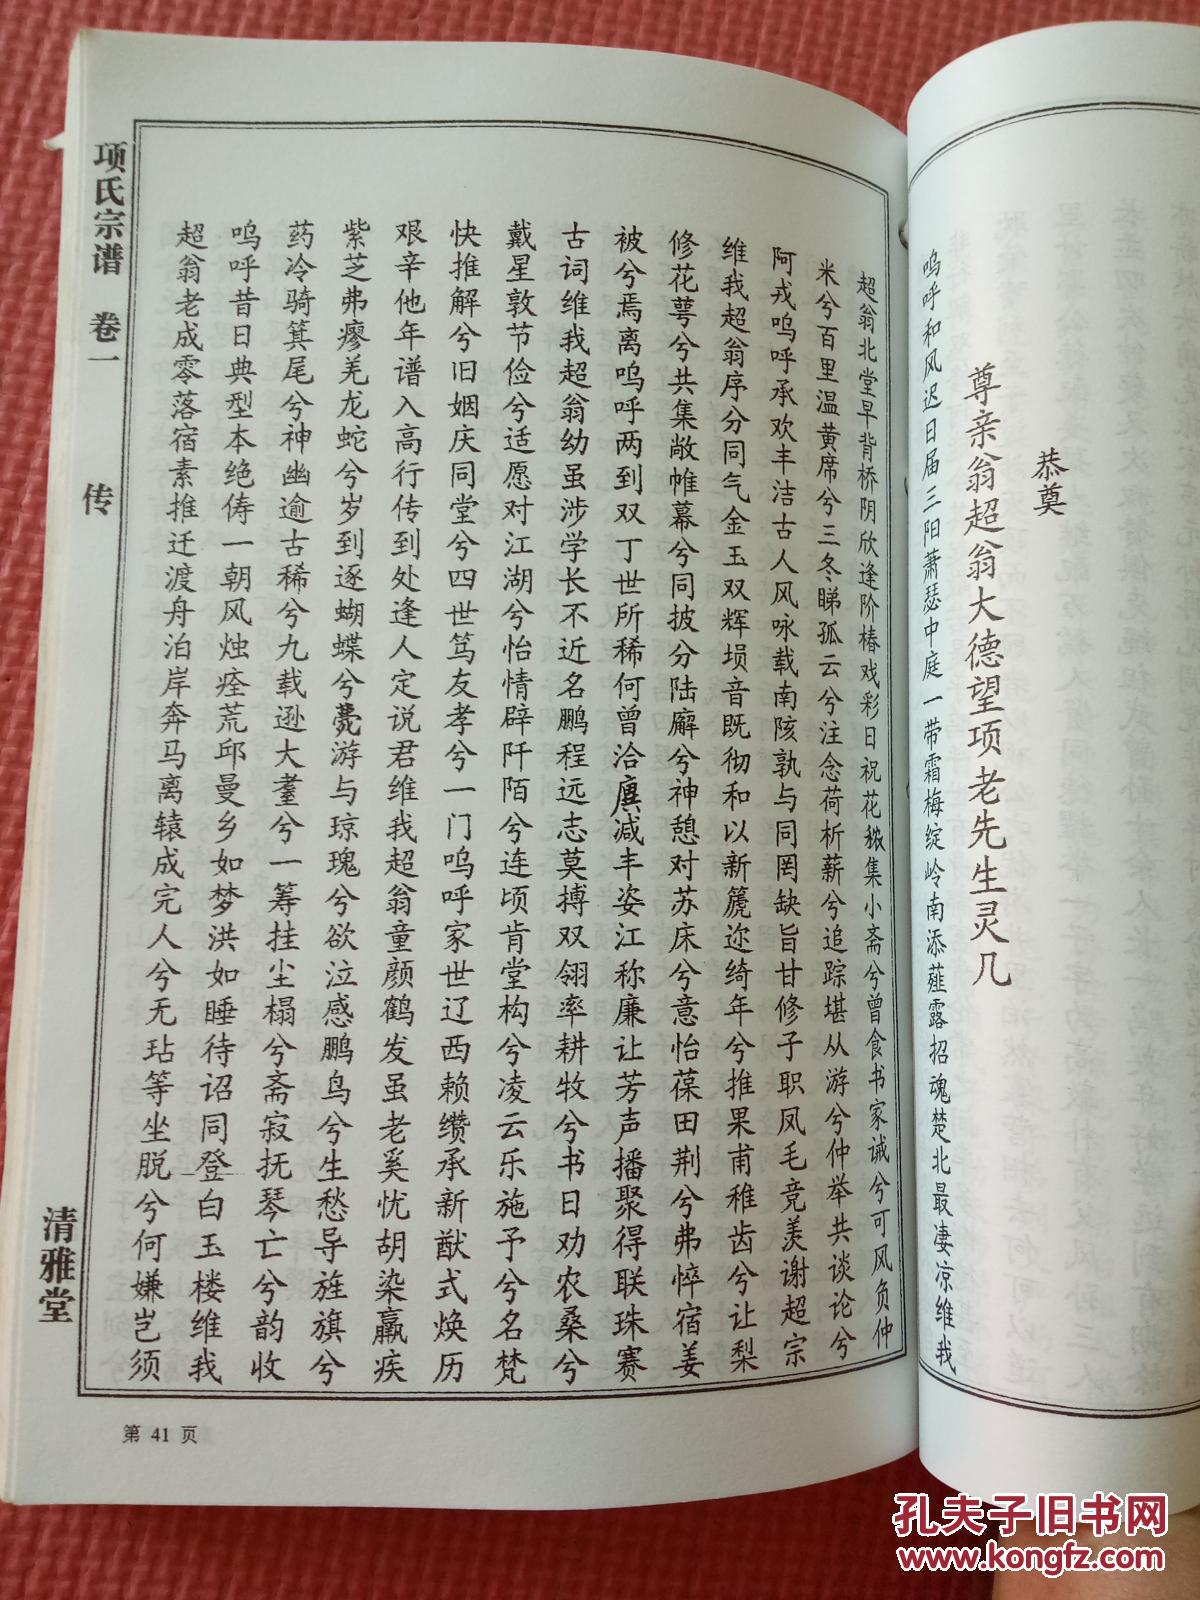 恭奠
尊亲翁超翁大德望项老先生灵几
呜呼和风迟日届三阳萧瑟中庭一带霜梅绽岭南添薤露招魂楚北最凄凉维我
超翁北堂早背桥阴欣逢阶椿戏彩日祝花秾集小斋兮曾食书家诚兮可风负仲
米兮百里温黄席兮三冬睇孤云兮注念荷析薪兮追踪堪从游兮仲举共谈论兮
阿戎呜呼承欢丰洁古人风咏载南陔孰与同罔缺旨甘修子职凤毛竞羡谢超宗
维我超翁序分同气金玉双辉埙音既彻和以新篪迩绮年兮推果甫稚齿兮让梨
修花萼兮共集敞帷幕兮同披分陆廨兮神憩对苏床兮意怡葆田荆兮弗悴宿姜
被兮焉离呜呼两到双丁世所稀何曾洽减丰姿江称廉让芳声播聚得联珠赛
古词维我超翁幼虽涉学长不近名鹏程远志莫搏双翎率耕牧兮书日劝农桑兮
戴星敦节俭兮适愿对江湖兮怡情辟阡陌兮连顷肯堂构兮凌云乐施予兮名梵
快推解兮旧姻庆同堂兮四世笃友孝兮一门呜呼家世辽西赖缵承新猷式焕历
艰辛他年谱入高行传到处逢人定说君维我超翁童颜鹤发虽老奚忧胡染羸疾
紫芝弗瘳羌龙蛇兮岁到逐蝴蝶兮游与琼瑰兮欲泣感鹏鸟兮生愁导旌旗兮
药冷骑箕尾兮神幽逾古稀兮九载逊大耋兮一筹挂尘榻兮斋寂抚琴亡兮韵收
呜呼昔日典型本绝俦一朝风烛痊荒邱曼乡如梦洪如睡待诏同登白玉楼维我
超翁老成零落宿素推迁渡舟泊岸奔马离辕成完人兮无玷等坐脱兮何嫌岂须
项氏宗谱 卷一 传 清雅堂
第 41 页
孔夫子旧书网
www.kongfz.com